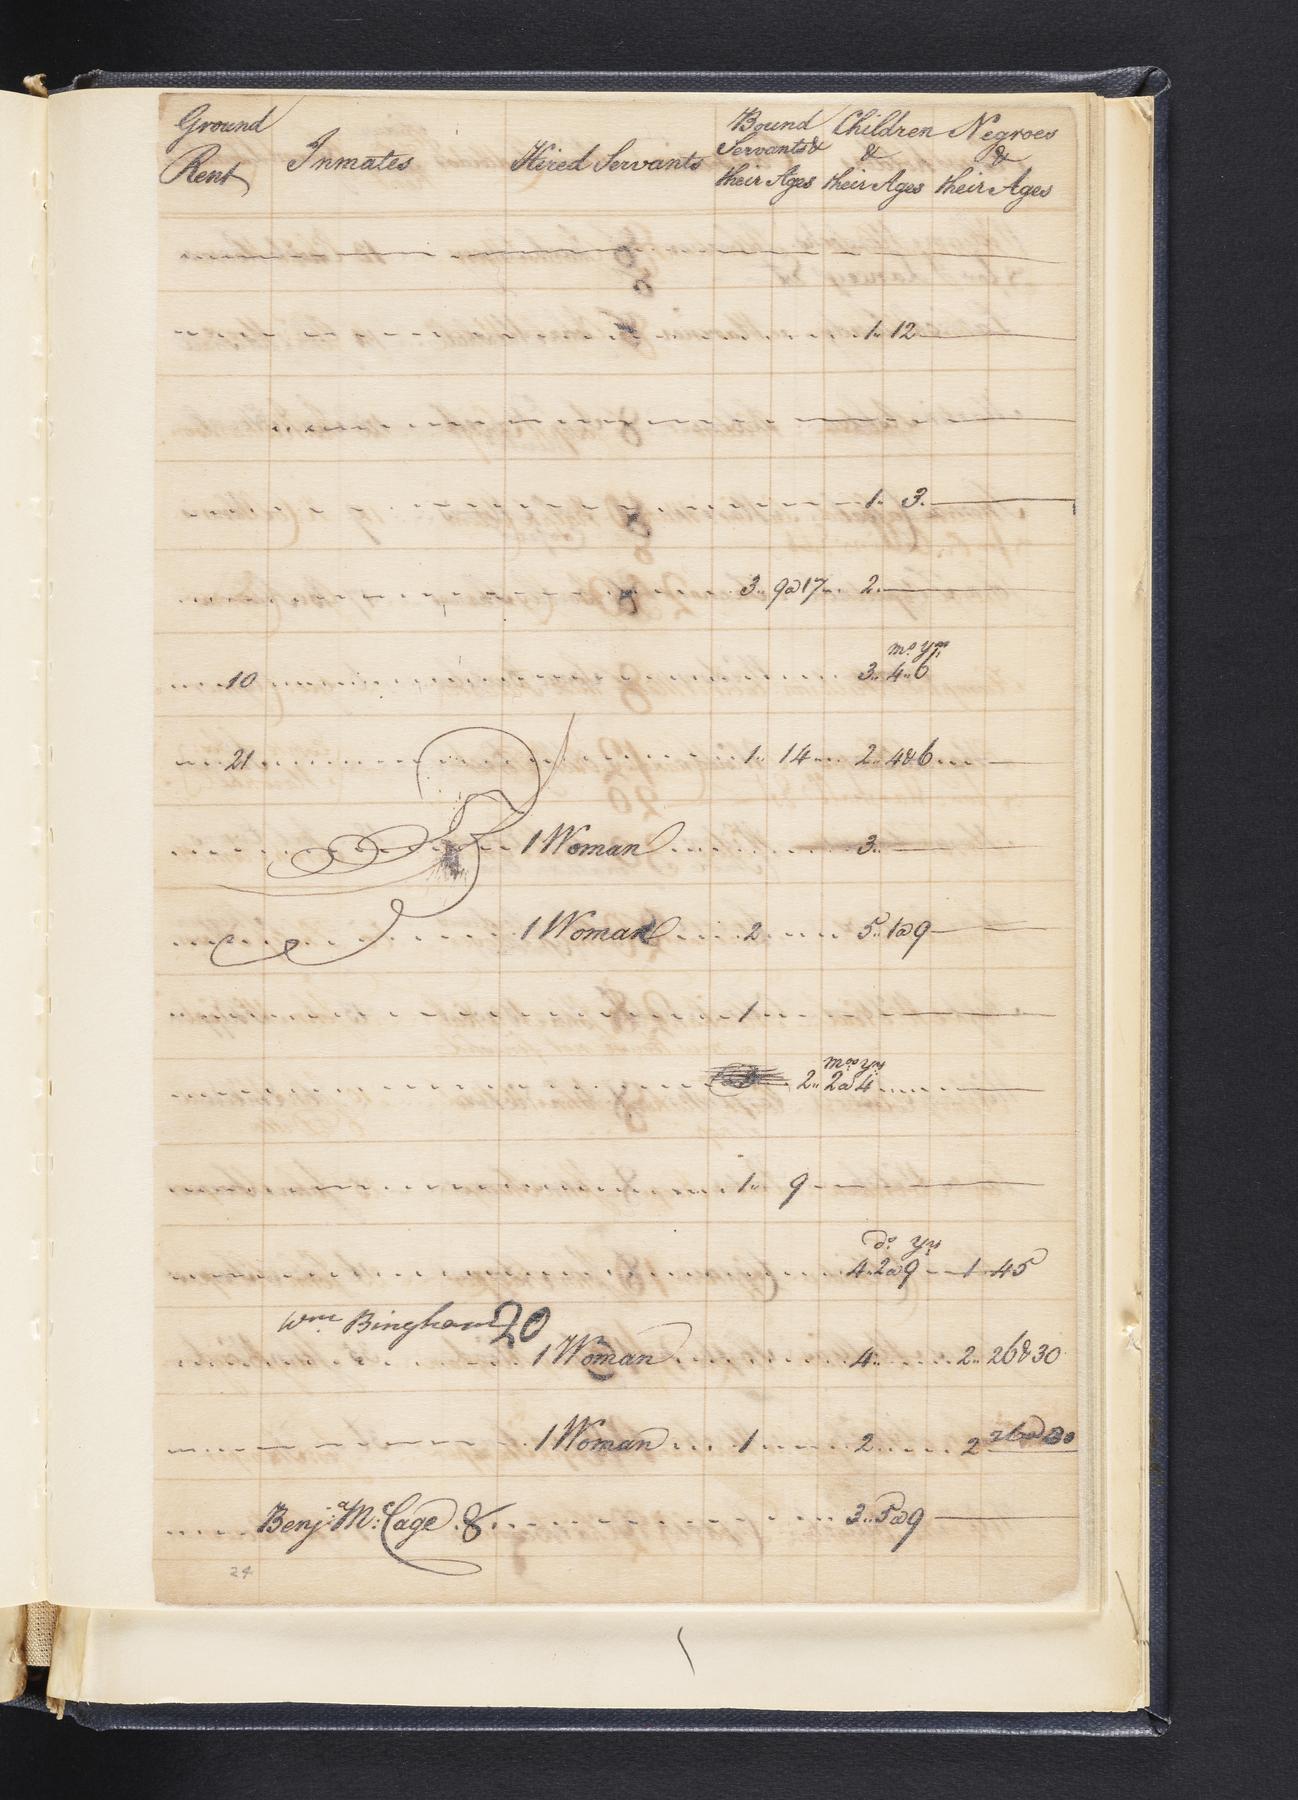 Ground Rent Inmates Hired Servants Bound Servants & their Ages Children & their Ages Negroes & their Ages
1.. 12
1.. 3.
3.. 9 a 17.. 2.
mo. yrs.
10 3.. 4..6
21 1.. 14 2.. 4 & 6
1 Woman 3..
1 Woman 2 5.. 1 a 9
1
mos. yrs.
2.. 2 a 4
1.. 9
do. yrs.
4.. 2 a 9 1 45
Wm. Bingham 20
1 Woman 4.. 2.. 26 & 30
1 Woman 1 2 2 26 a 30
Benja. Mc:Cage .8 3.. 5 a 9
24